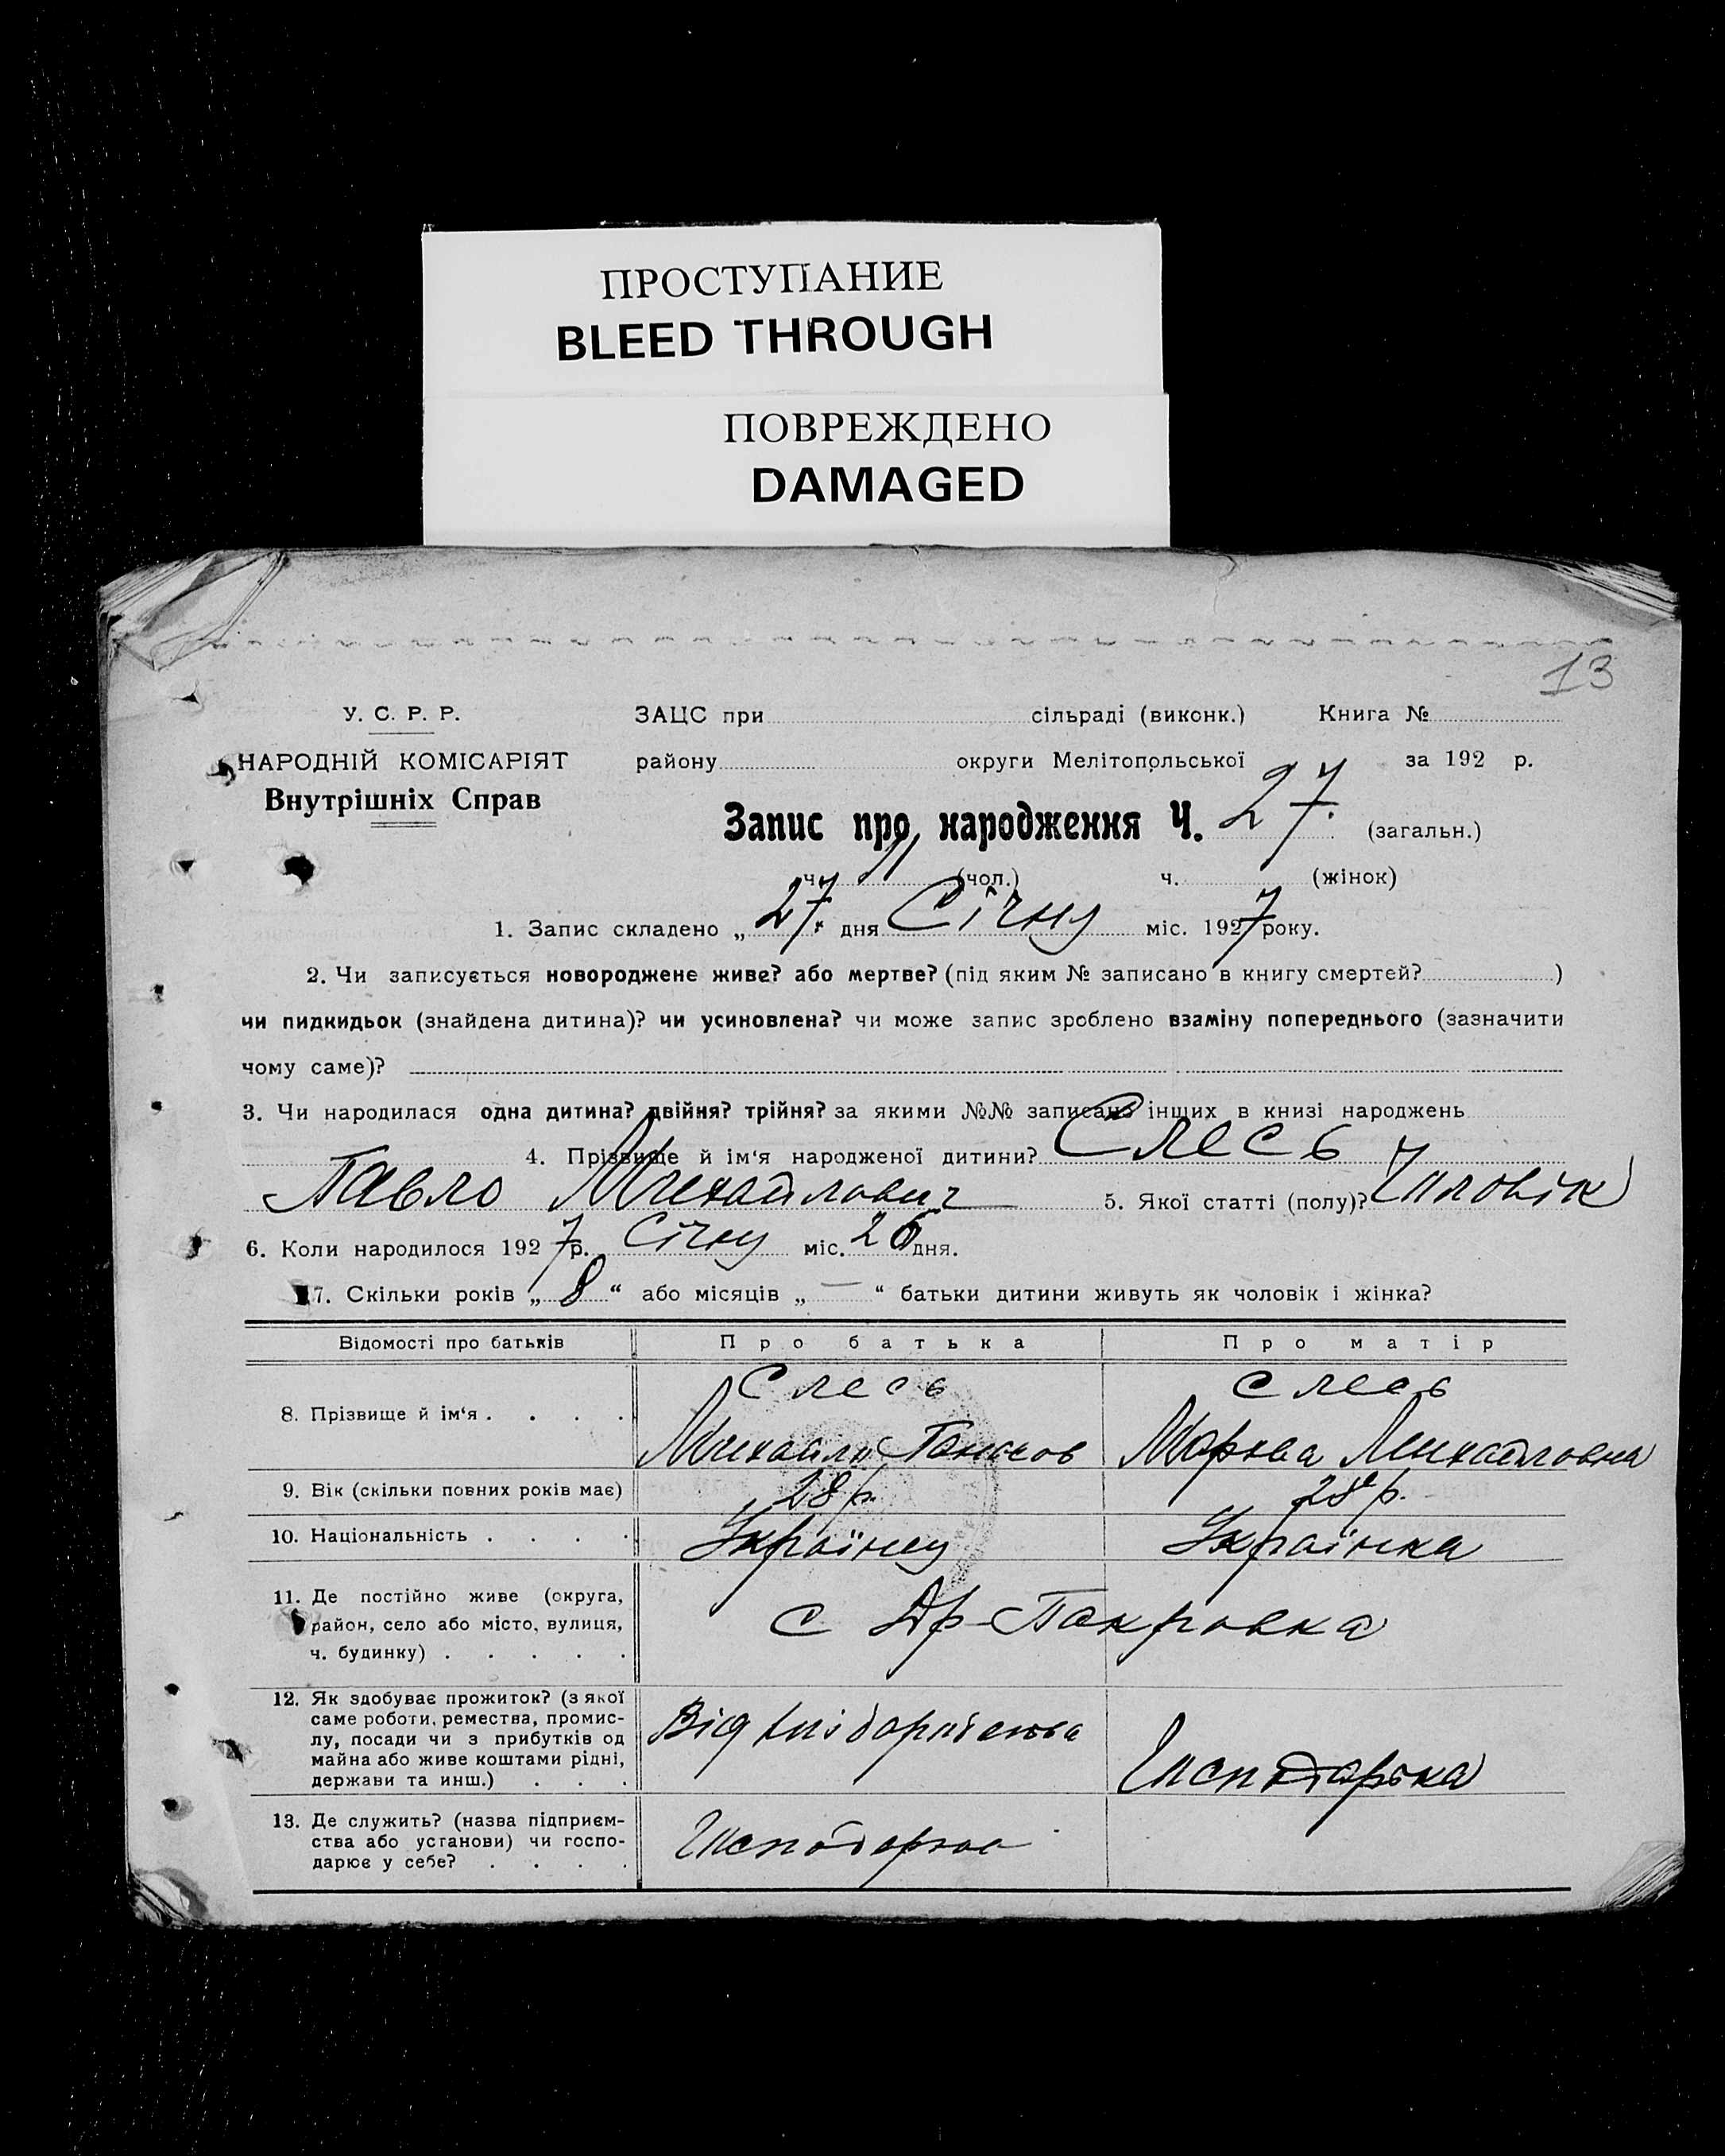 ПРОСТУПАНИЕ
BLEED THROUGH
ПОВРЕЖДЕНО
DAMAGED
13
У. С. Р. Р.
НАРОДНІЙ КОМІСАРІЯТ
Внутрішніх Справ
ЗАЦС при сільраді (виконк.) Книга №
району округи Мелітопольської за 192 р.
Запис про народження Ч. 27. (загальн.)
ч. 11 (чол.) ч. (жінок)
1. Запис складено „27“ дня Січну міс. 1927 року.
2. Чи записується новороджене живе? або мертве? (під яким № записано в книгу смертей? )
чи пидкидьок (знайдена дитина)? чи усиновлена? чи може запис зроблено взаміну попереднього (зазначити
чому саме)?
3. Чи народилася одна дитина? двійня? трійня? за якими №№ записано інших в книзі народжень
4. Прізвище й ім‘я народженої дитини? Слесь
Павло Михайлович 5. Якої статті (полу)? Чловік
6. Коли народилося 1927 р. Січну міс. 26 дня.
7. Скільки років „8“ або місяців „—“ батьки дитини живуть як чоловік і жінка?
Відомості про батьків Про батька Про матір
8. Прізвище й ім‘я . . . . .
Слесь
Михайло
Слесь
Марква Михайловна
9. Вік (скільки повних років має) 28 р. 28 р.
10. Національність . . . . Українец Українка
11. Де постійно живе (округа,
район, село або місто, вулиця,
ч. будинку) . . . . .
с Др-Покровка
12. Як здобуває прожиток? (з якої
саме роботи, ремества, промис-
лу, посади чи з прибутків од
майна або живе коштами рідні,
держави та инш.) . . .
Від
13. Де служить? (назва підприєм-
ства або установи) чи госпо-
дарює у себе? . . . .